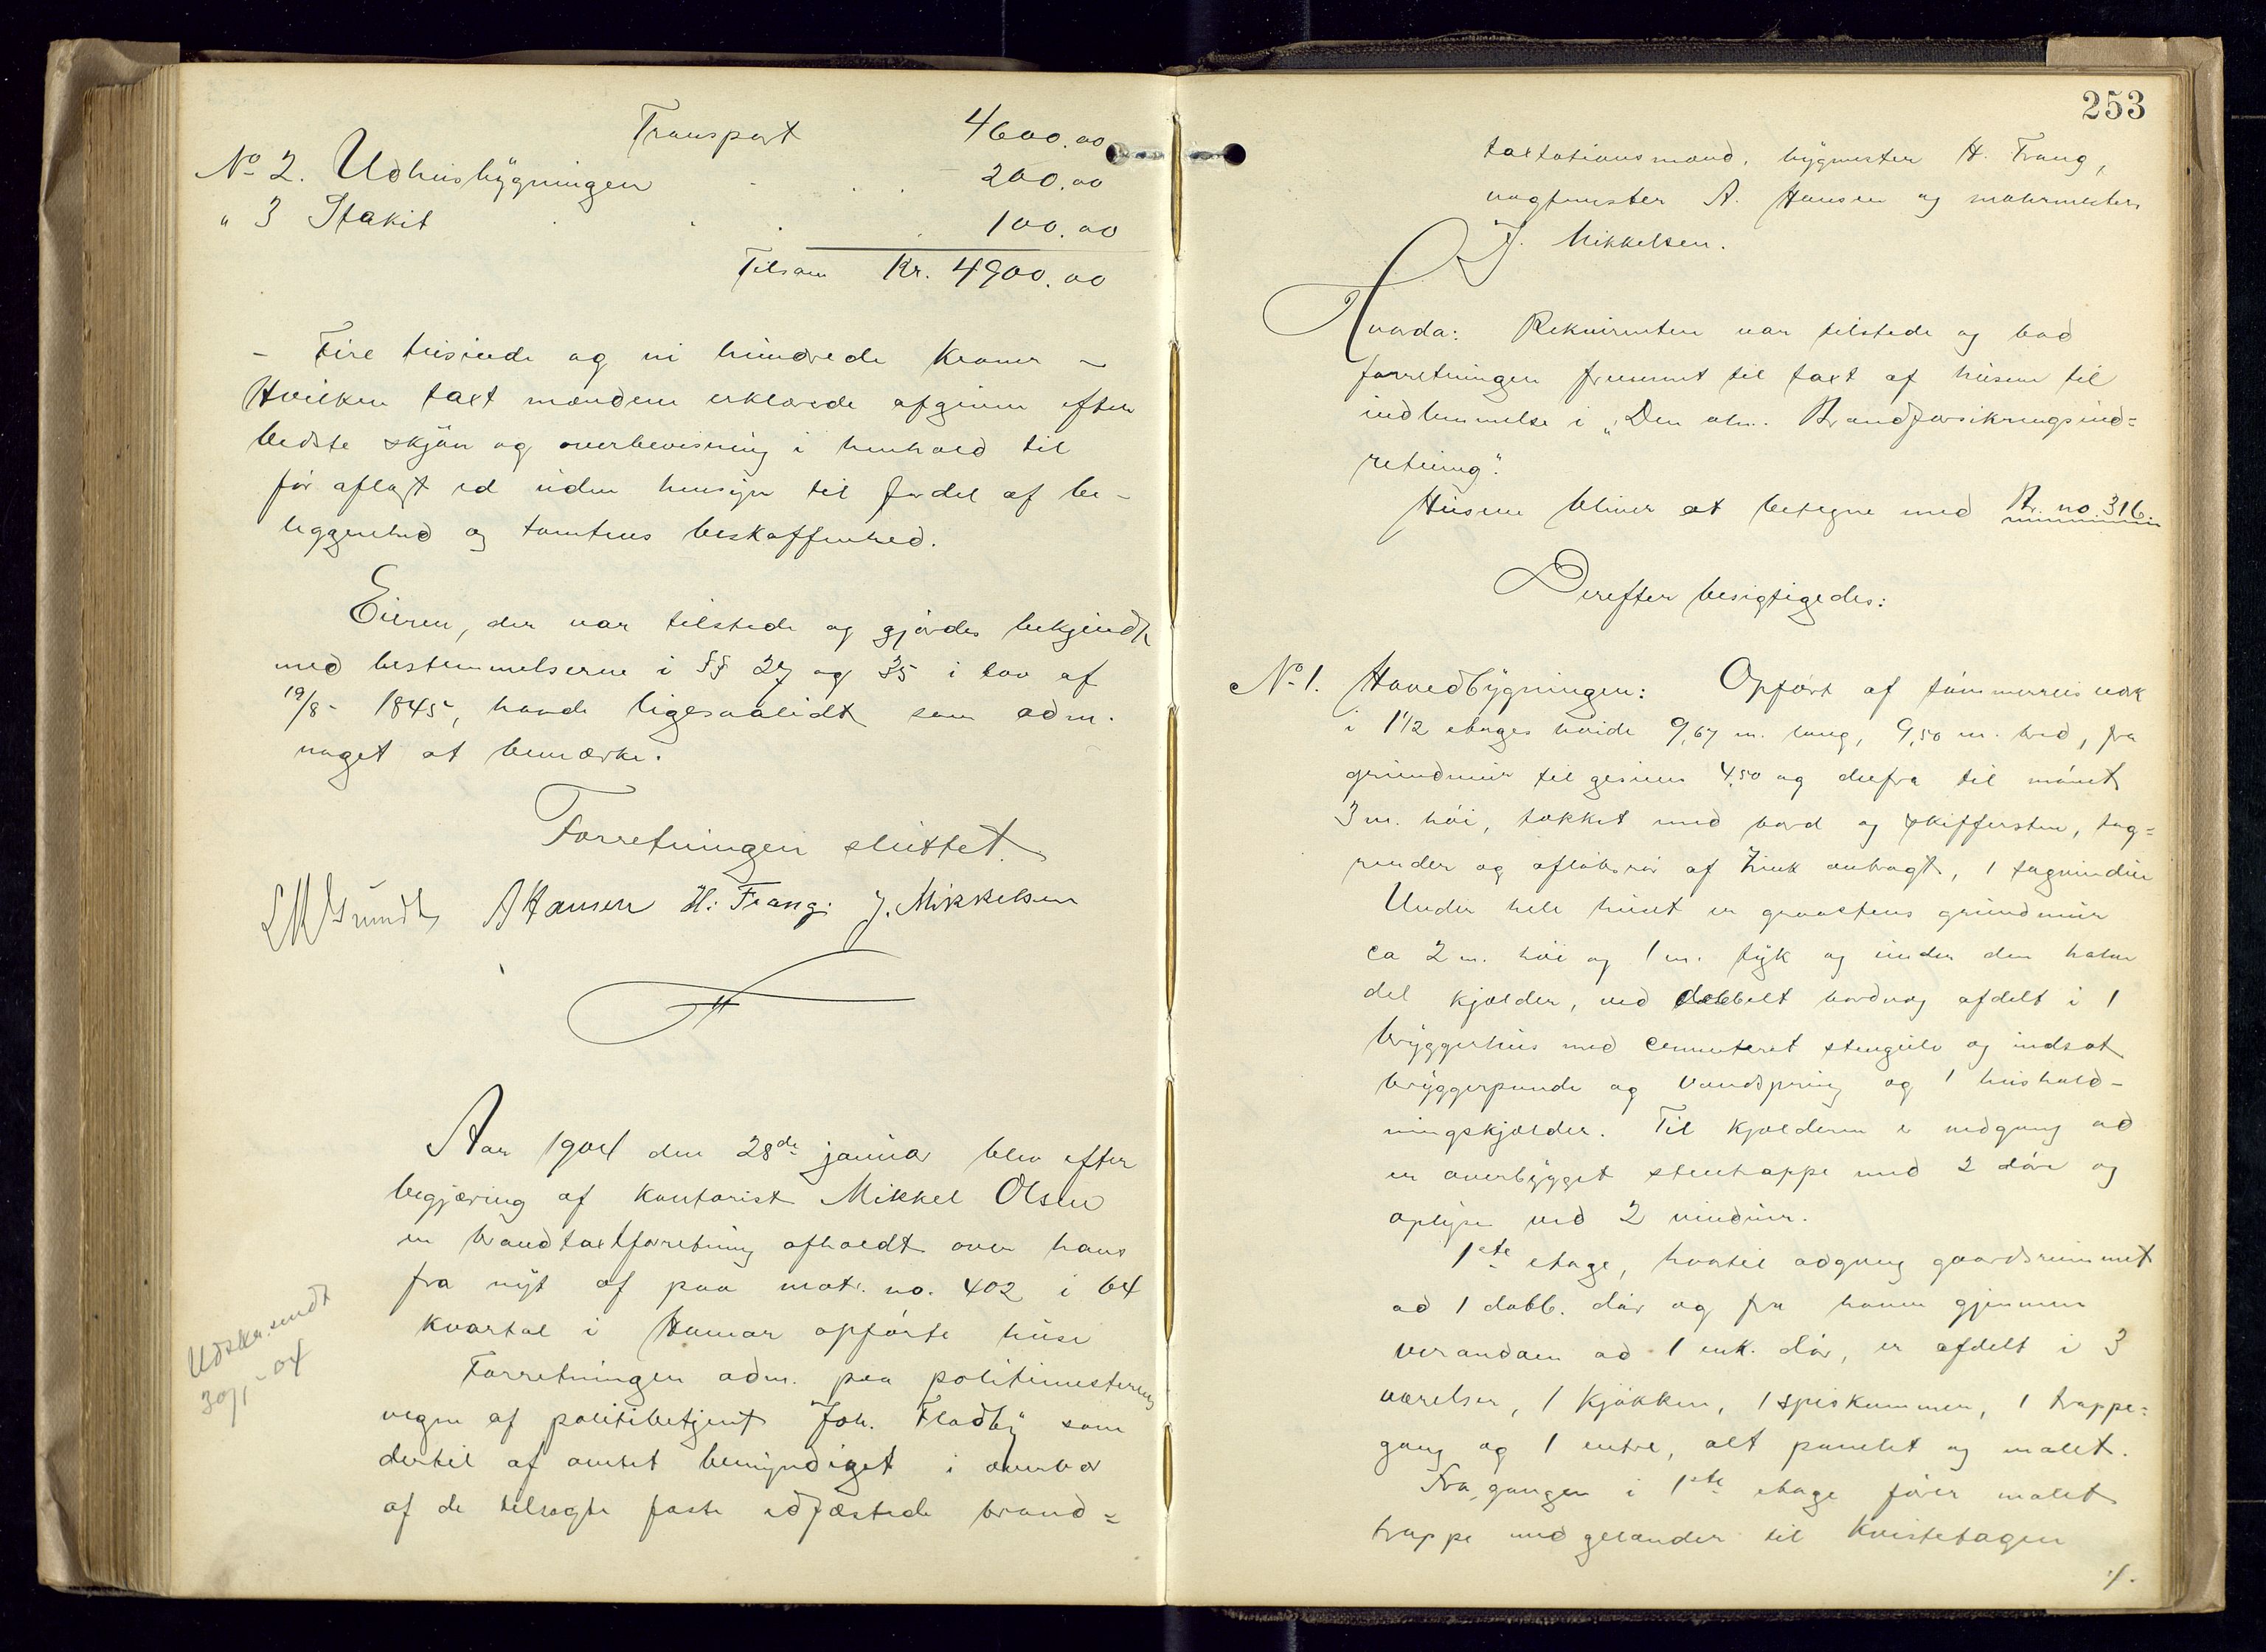 Transport 4600.00
No 2. Udhusbygningen 200.00
" 3 Stakit 100.00
Tilsam Kr. 4900.00
- Fire tusinde og ni hundrede Kroner -
Hvilken taxt mændene erklærede afgiven efter
bedste skjøn og overbevisning i henhold til
før aflagt ed uden hensyn til fordel af be-
liggenhed og tomtens beskaffenhed.
Eieren, der var tilstede og gjordes bekjendt
med bestemmelserne i §§ 27 og 35 i lov af
19/8- 1845, havde ligesaalidt som adm.
noget at bemærke.
Forretningen sluttet.
Grundt A Hansen H: Frang: J. Mikkelsen
Aar 1904 den 28de januar blev efter
begjæring af kontorist Mikkel Olsen
en brandtaxtforretning afholdt over hans
fra nyt af paa matr. no. 402 i 64
kvartal i Hamar opførte huse
Udskr. sendt
30/1-04
Forretningen adm. paa politimesterens
vegne af politibetjent Joh. Fladby som
dertil af amtet bemyndiget i overvær
af de tilsagte faste edfæstede brand=
253
taxtationsmænd, bygmester H. Frang,
vognmester A. Hansen og malermester
J. Mikkelsen.
Hvorda: Rekvirenten var tilstede og bad
forretningen fremmet til taxt af husene til
indlemmelse i „Den alm. Brandforsikringsind=
retning".
Husene bliver at betegne med Br. no. 316.
Derefter besigtigedes:
No 1. Hovedbygningen: Opført af tømmerreisverk
i 1 1/2 etages høide 9,67 m. lang, 9,50 m. bred, fra
grundmur til gesims 4,50 og derfra til mønet
3 m. høi, tækket med bord og skiffersten, tag=
render og afløbsrør af zink anbragt, 1 tagvindu
Under hele huset er graastens grundmur
ca 2 m. høi og 1 m. tyk og under den halve
del kjælder, ved dobbelt bordvæg afdelt i 1
bryggerhus med cementeret stengulv og indsat
bryggerpande og vandspring og 1 hushold-
ningskjælder. Til kjælderen er nedgang ad
en overbygget stentrappe med 2 døre og
oplyses ved 2 vinduer.
1ste etage, hvortil adgang gaardsrummet
ad 1 dobb. dør og fra haven gjennem
verandaen ad 1 enk. dør, er afdelt i 3
værelser, 1 kjøkken, 1 spiskammer, 1 trappe=
gang og 1 entre, alt panelet og malet.
Fra gangen i 1ste etage fører malet
trappe med gelænder til kvistetagen
./.